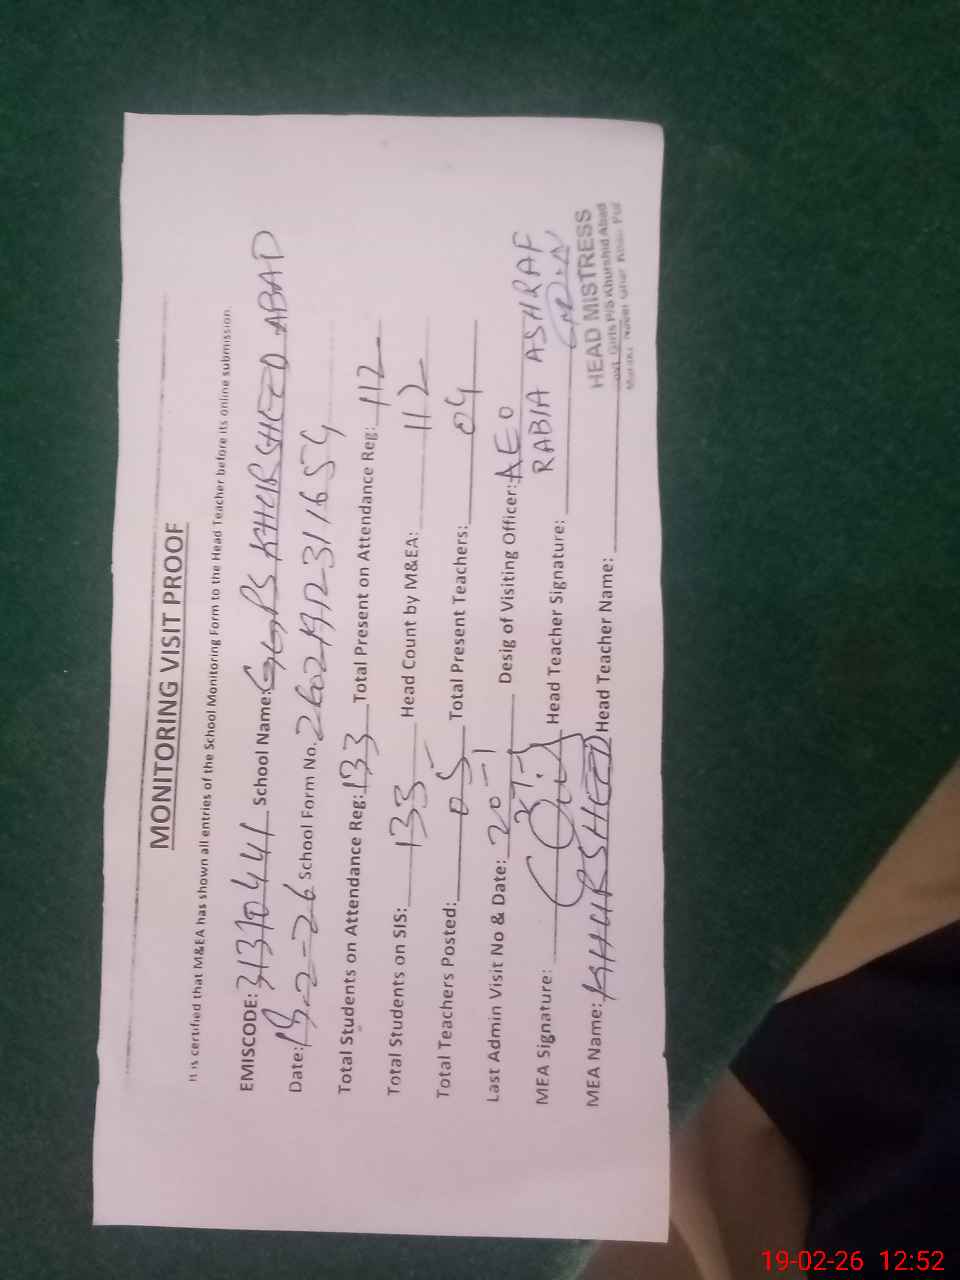 MONITORING VISIT PROOF
It is certified that M&EA has shown all entries of the School Monitoring Form to the Head Teacher before its online submission.
EMISCODE: 31310441 School Name: GGPS KHURSHEED ABAD
Date: 19-2-26 School Form No. 2602191231654
Total Students on Attendance Reg: 133 Total Present on Attendance Reg: 112
Total Students on SIS: 133 Head Count by M&EA: 112
Total Teachers Posted: 05 Total Present Teachers: 04
Last Admin Visit No & Date: 20-1 Desig of Visiting Officer: AEO
RABIA ASHRAF
MEA Signature: Head Teacher Signature:
HEAD MISTRESS
Girls P/S Khurshid Abad
MEA Name: KHURSHEED Head Teacher Name:
19-02-26 12:52